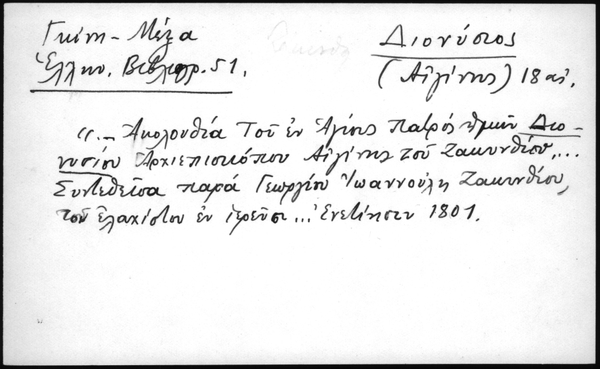 Γκίνη - Μέξα
Διονύσιος
Ἑλλην. Βιβλιογρ. 51.
(Αἰγίνης) 18 αἰ.
"..- Ἀκολουθία τοῦ ἐν Ἁγίοις πατρός ἡμῶν Διο-
νυσίου Ἀρχιεπισκόπου Αἰγίνης τοῦ Ζακυνθίου,...
Συντεθεῖσα παρά Γεωργίου Ἰωαννούλη Ζακυνθίου,
τοῦ ἐλαχίστου ἐν ἱερεῦσι... Ἐνετίησιν 1801.